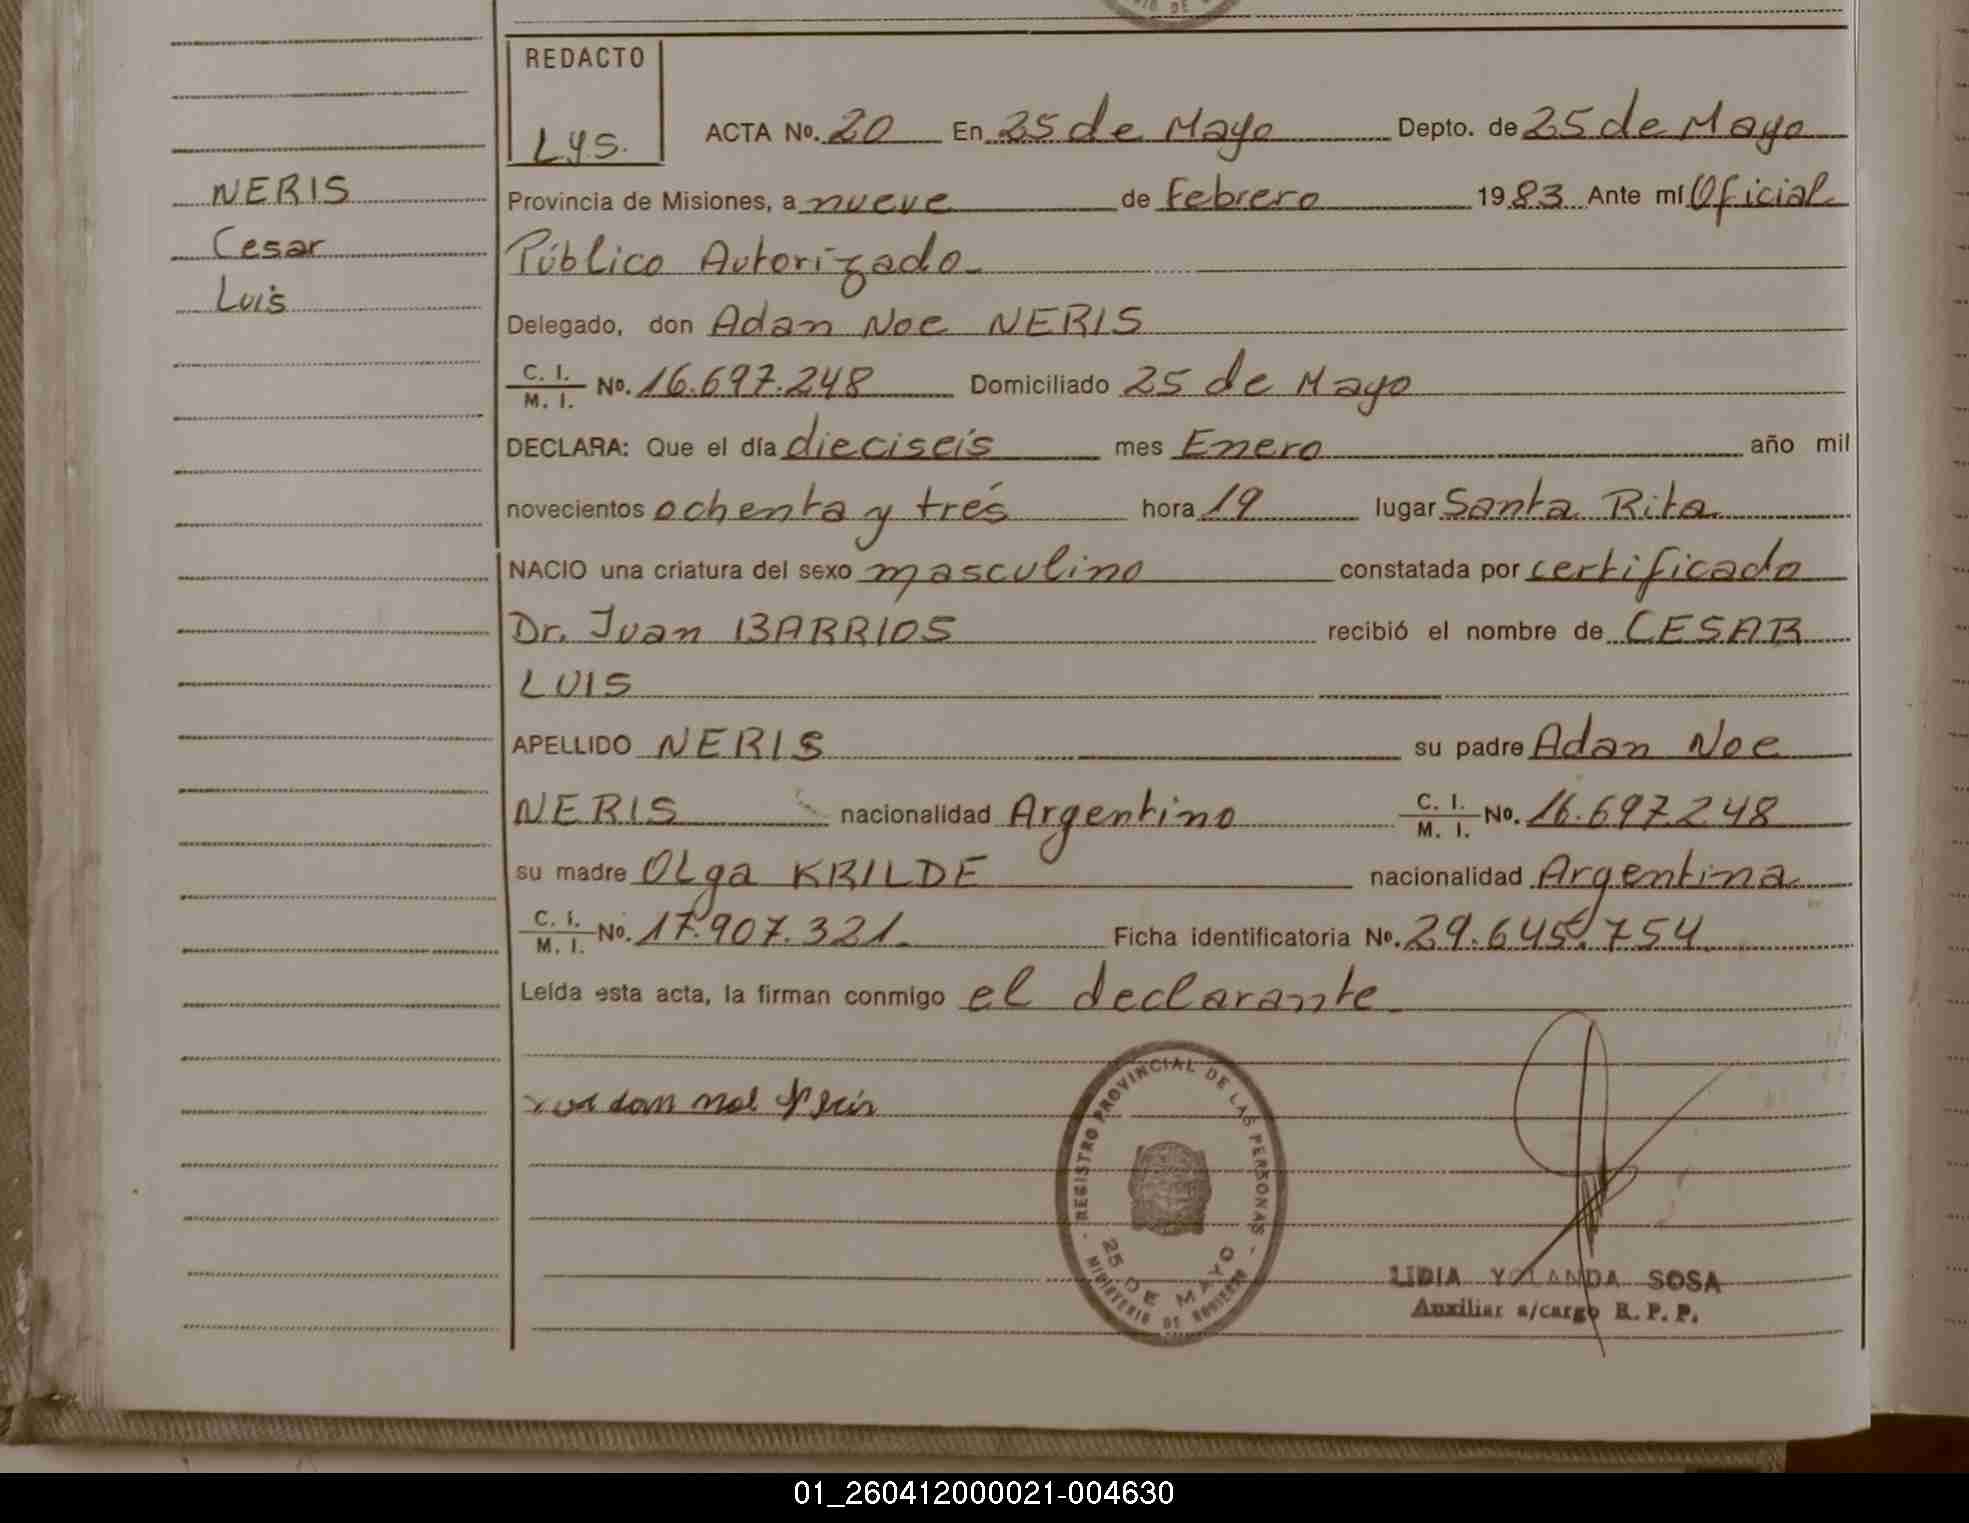 REDACTO
LYS.
ACTA No. 20 En 25 de Mayo Depto. de 25 de Mayo
NERIS
Cesar
Luis
Provincia de Misiones, a nueve de Febrero 1983 Ante mí Oficial
Público Autorizado
Delegado, don Adan Noe NERIS
C. I. / M. I. No. 16.697.248 Domiciliado 25 de Mayo
DECLARA: Que el día dieciseís mes Enero año mil
novecientos ochenta y trés hora 19 lugar Santa Rita
NACIO una criatura del sexo masculino constatada por certificado
Dr. Juan BARRIOS recibió el nombre de CESAR
LUIS
APELLIDO NERIS su padre Adan Noe
NERIS nacionalidad Argentino C. I. / M. I. No. 16.697.248
su madre OLga KRILDE nacionalidad Argentina
C. I. / M. I. No. 17.907.321. Ficha identificatoria No. 29.645.754
Leída esta acta, la firman conmigo el declarante
REGISTRO PROVINCIAL DE LAS PERSONAS
25 DE MAYO
MINISTERIO DE GOBIERNO
LIDIA YOLANDA SOSA
Auxiliar a/cargo R. P. P.
01_260412000021-004630